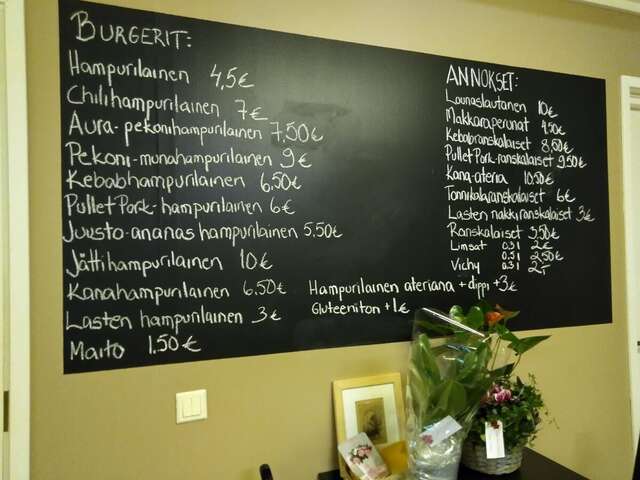 BURGERIT:
Hampurilainen 4,5€
Chilihampurilainen 7€
Aura-pekonihampurilainen 7,50€
Pekoni-munahampurilainen 9€
Kebabhampurilainen 6,50€
Pullet Pork-hampurilainen 6€
Juusto-ananas hampurilainen 5,50€
Jättihampurilainen 10€
Kanahampurilainen 6,50€
Lasten hampurilainen 3€
Maito 1.50€
Hampurilainen ateriana + dippi +3€
Gluteeniton +1€
ANNOKSET:
Lounaslautanen 10€
Makkaraperunat 4,50€
Kebabranskalaiset 8,50€
Pullet Pork-ranskalaiset 9,50€
Kana-ateria 10,50€
Tonnikalaranskalaiset 6€
Lasten nakkiranskalaiset 3€
Ranskalaiset 3,50€
Limsat 0.3l 2€
0.5l 2,50€
Vichy 0.3l 2,-